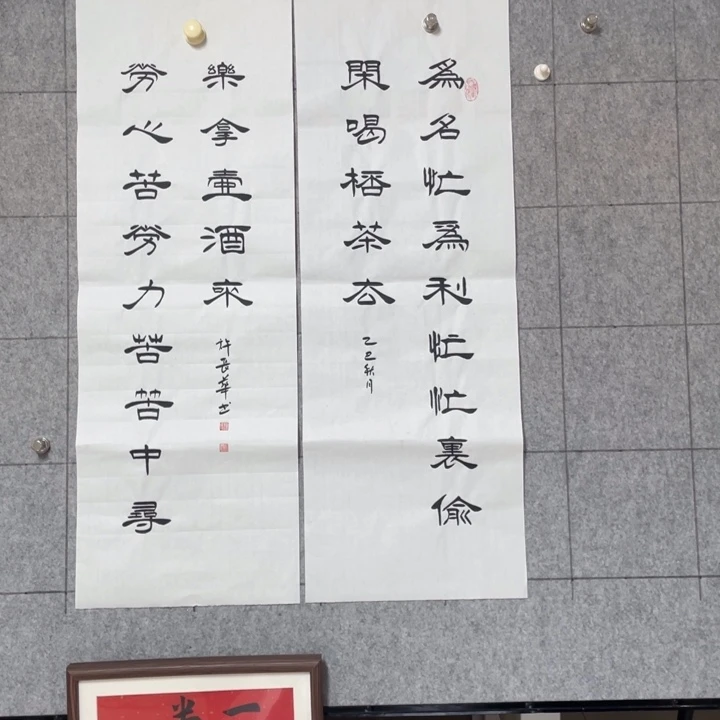 爲名忙爲利忙忙裏偷
閑喝桮茶去
乙巳秋月
勞心苦勞力苦苦中尋
樂拿壷酒來
許長華书